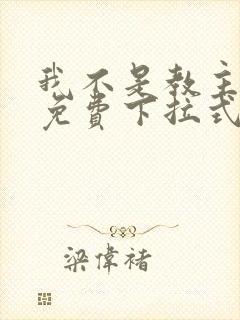 我不是教主
免費下拉式
梁偉褚